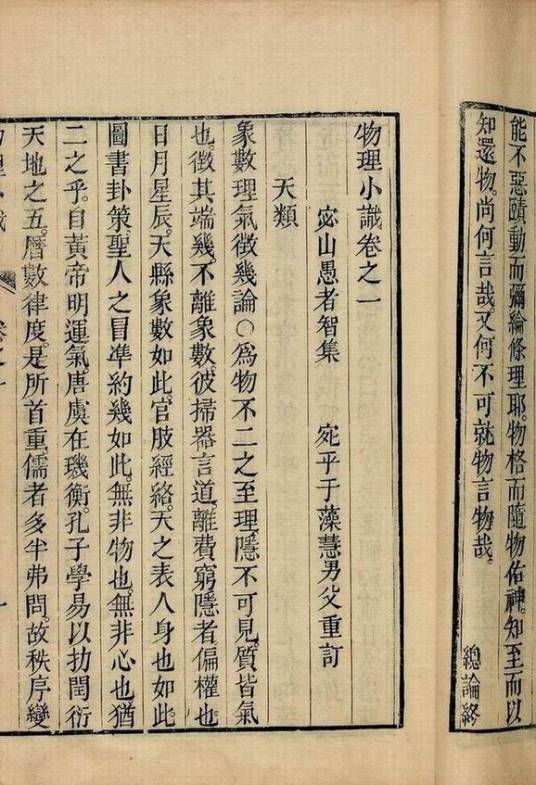 能不惡賾動而彌綸條理耶。物格而隨物佑神。知至而以
知還物。尚何言哉。又何不可就物言物哉。
總論終
物理小識卷之一
宓山愚者智集　宛平于藻慧男父重訂
天類
象數理氣徵幾論○為物不二之至理。隱不可見。質皆氣
也。徵其端幾。不離象數。彼掃器言道。離費窮隱者。偏權也
日月星辰。天縣象數如此。官肢經絡。天之表人身也如此
圖書卦策。聖人之冒準約幾如此。無非物也。無非心也猶
二之乎。自黃帝明運氣。唐虞在璣衡。孔子學易以扐閏衍
天地之五。曆數律度。是所首重。儒者多半弗問。故秩序變